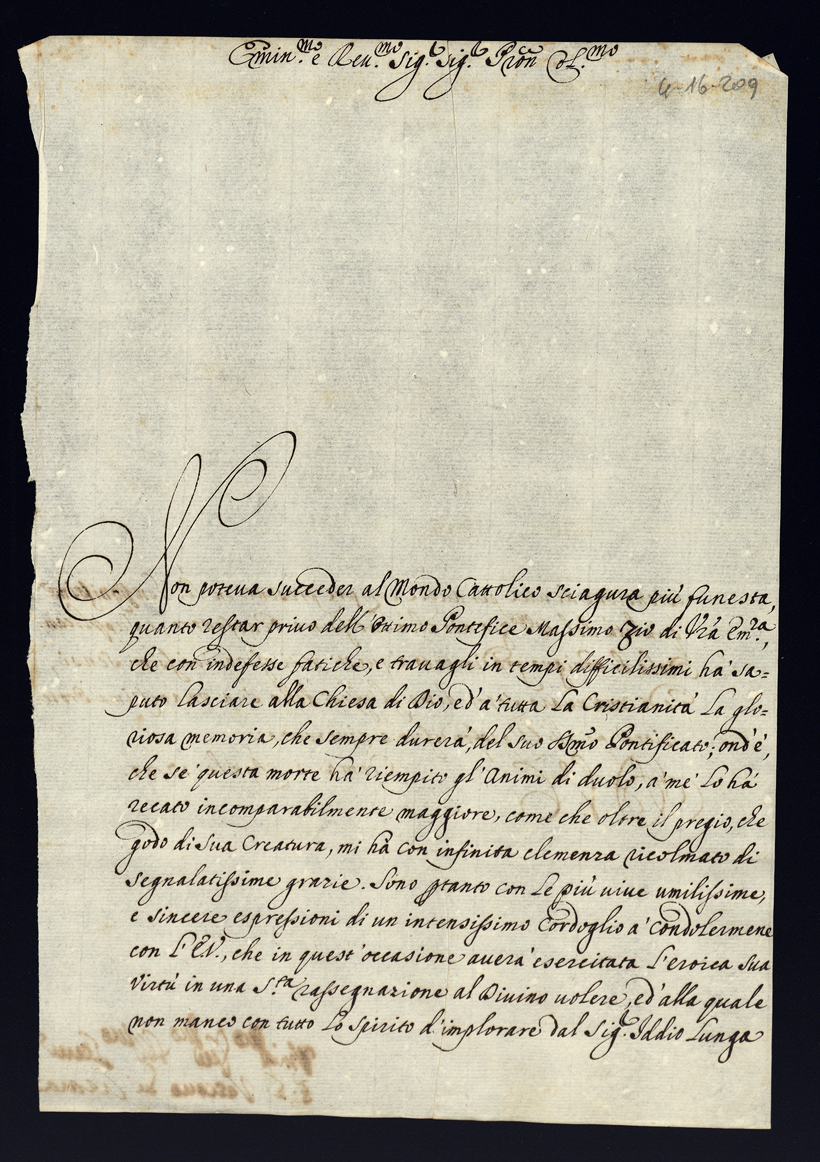 Emin.mo e Reu.mo Sig.r Sig.r Pron Col.mo
4-16-209
Non poteua succeder al Mondo Cattolico sciagura più funesta,
quanto restar priuo dell'Ottimo Pontefice Massimo Zio di Vra Em.za,
che con indefesse fatiche, e trauagli in tempi difficilissimi hà sa=
puto lasciare alla Chiesa di Dio, ed à tutta La Cristianità La glo=
riosa memoria, che sempre durerà, del suo Smo Pontificato; ond'è,
che sè questa morte hà riempito gl'Animi di duolo, à mè Lo hà
recato incomparabilmente maggiore, come che oltre il pregio, che
godo di Sua Creatura, mi hà con infinita clemenza ricolmato di
segnalatissime grazie. Sono ptanto con Le più viue umilissime,
e sincere espressioni di un intensissimo Cordoglio à Condolermene
con L'E.V., che in quest'occasione auerà esercitata L'eroica Sua
Virtù in una S.ta rassegnazione al Diuino uolere, ed alla quale
non manco con tutto Lo Spirito d'implorare dal Sig.r Iddio Lunga